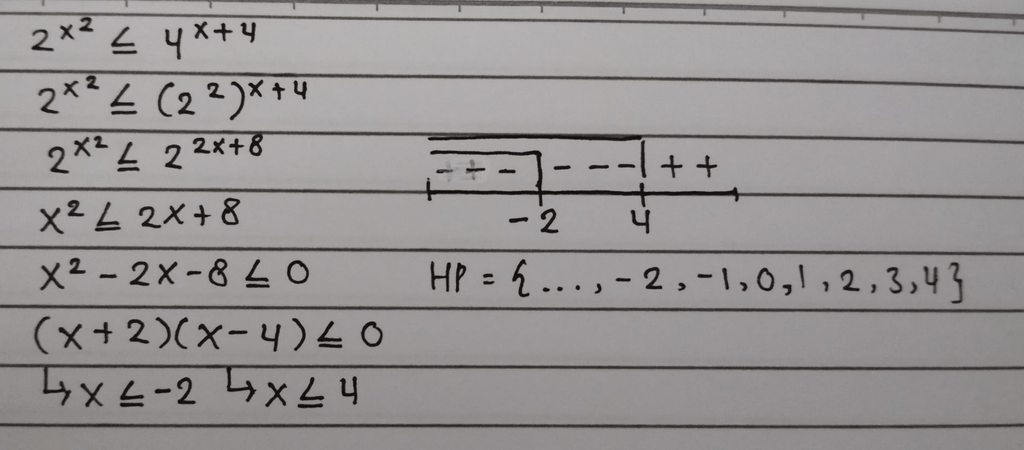 2^{x^2} ≤ 4^{x+4}
2^{x^2} ≤ (2^2)^{x+4}
2^{x^2} ≤ 2^{2x+8}
x^2 ≤ 2x+8
x^2 - 2x - 8 ≤ 0
(x+2)(x-4) ≤ 0
↳ x ≤ -2 ↳ x ≤ 4
- - - + +
-2 4
HP = {..., -2, -1, 0, 1, 2, 3, 4}